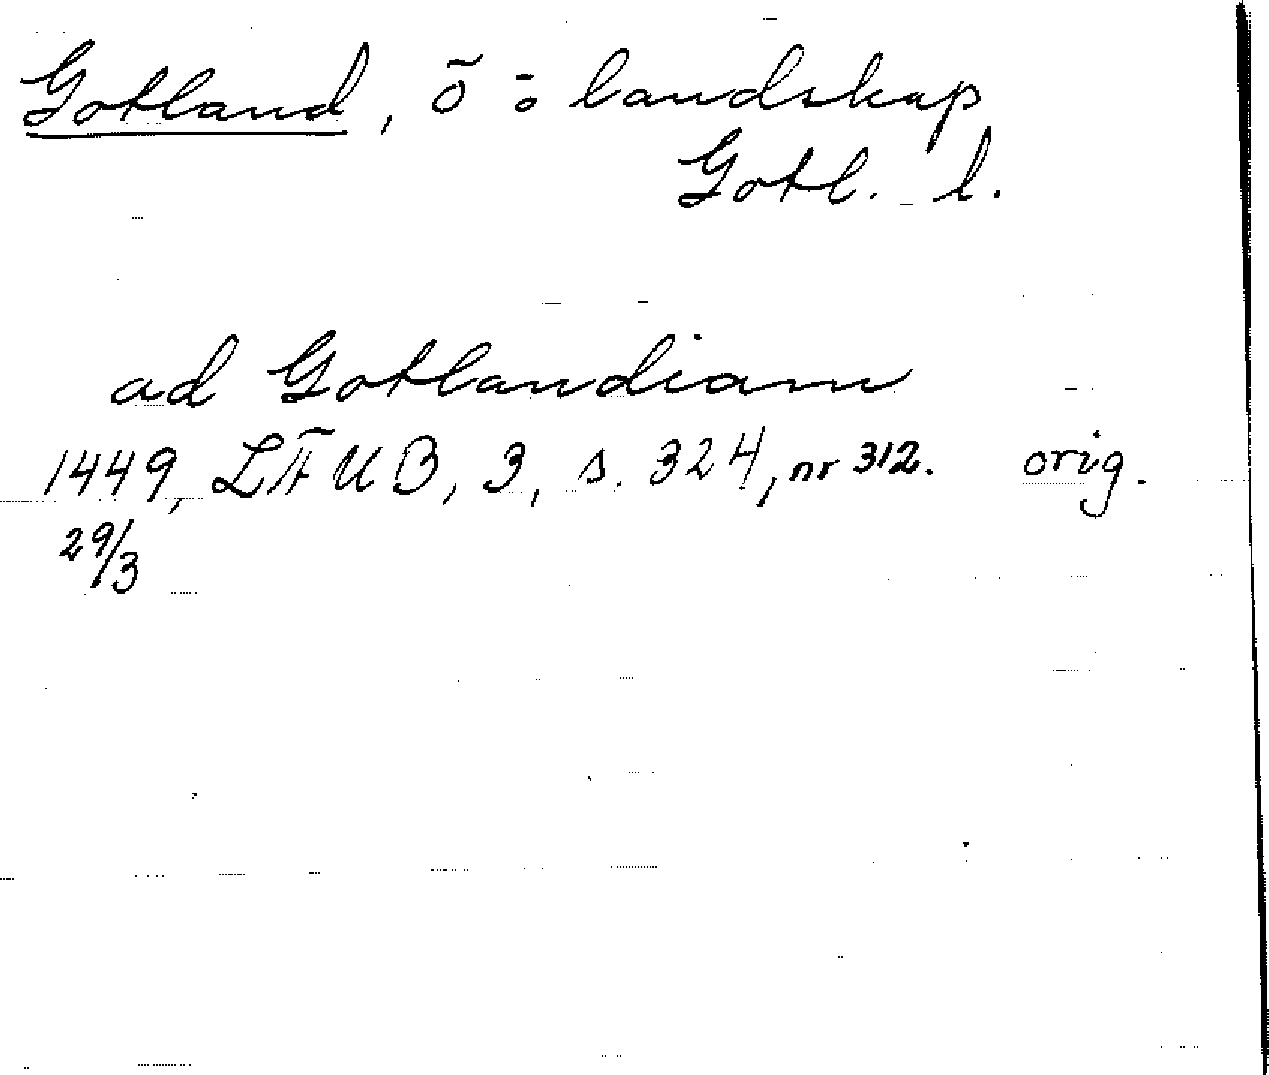 Gotland, ö o. landskap
Gotl. l.
ad Gotlandiam
1449, LFUB, 3, s. 324, nr 312. orig.
29/3